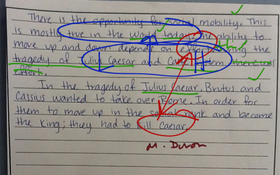 There is the opportunity for social mobility.
This is mostly true in the to
move up and down depend on the
tragedy of Julius Caesar and
effort.
In the tragedy of Julius Caesar, Brutus and
Cassius wanted to take over Rome. In order for
them to move up in the social rank and became
the king; they had to kill Caesar.
M.